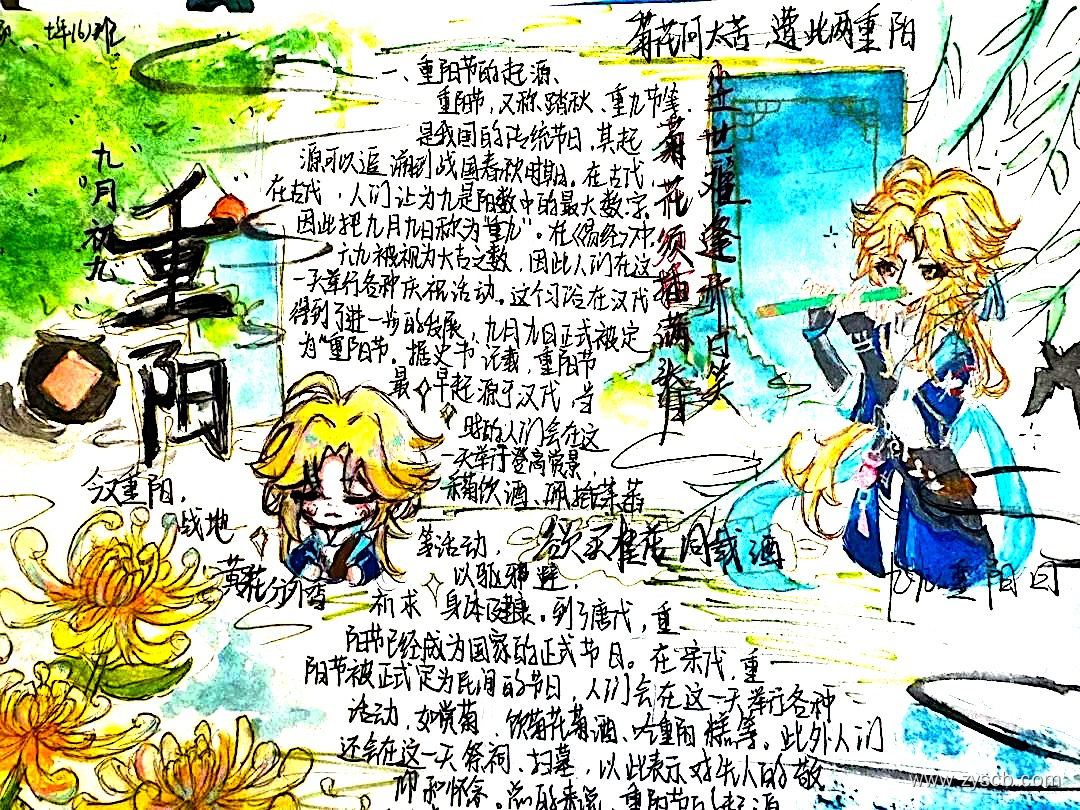 七年(6)班
菊花何太苦,遭此两重阳
尘世难逢开口笑
菊花须插满头
九月初九
重阳
今又重阳,
战地
黄花分外香
一、重阳节的起源、
重阳节,又称踏秋、重九节等,
是我国的传统节日,其起
源可以追溯到战国春秋时期。在古代,
在古代,人们认为九是阳数中的最大数字,
因此把九月九日称为"重九"。在《易经》中,
六九被视为大吉之数,因此人们在这
一天举行各种庆祝活动。这个习俗在汉代
得到了进一步的发展,九月九日正式被定
为"重阳节。据史书记载,重阳节
最早起源于汉代,当
时的人们会在这
一天举行登高赏景,
采菊饮酒、佩插茱萸
等活动,
以驱邪避,
祈求身体健康。到了唐代,重
阳节已经成为国家的正式节日。在宋代,重
阳节被正式定为民间的节日,人们会在这一天举行各种
活动,如赏菊、饮菊花酒、吃重阳糕等。此外人们
还会在这一天祭祠、扫墓,以此表示对先人的敬
仰和怀念。总的来说,重阳节的起源
欲买桂花同载酒
重阳日
www.zyscb.com